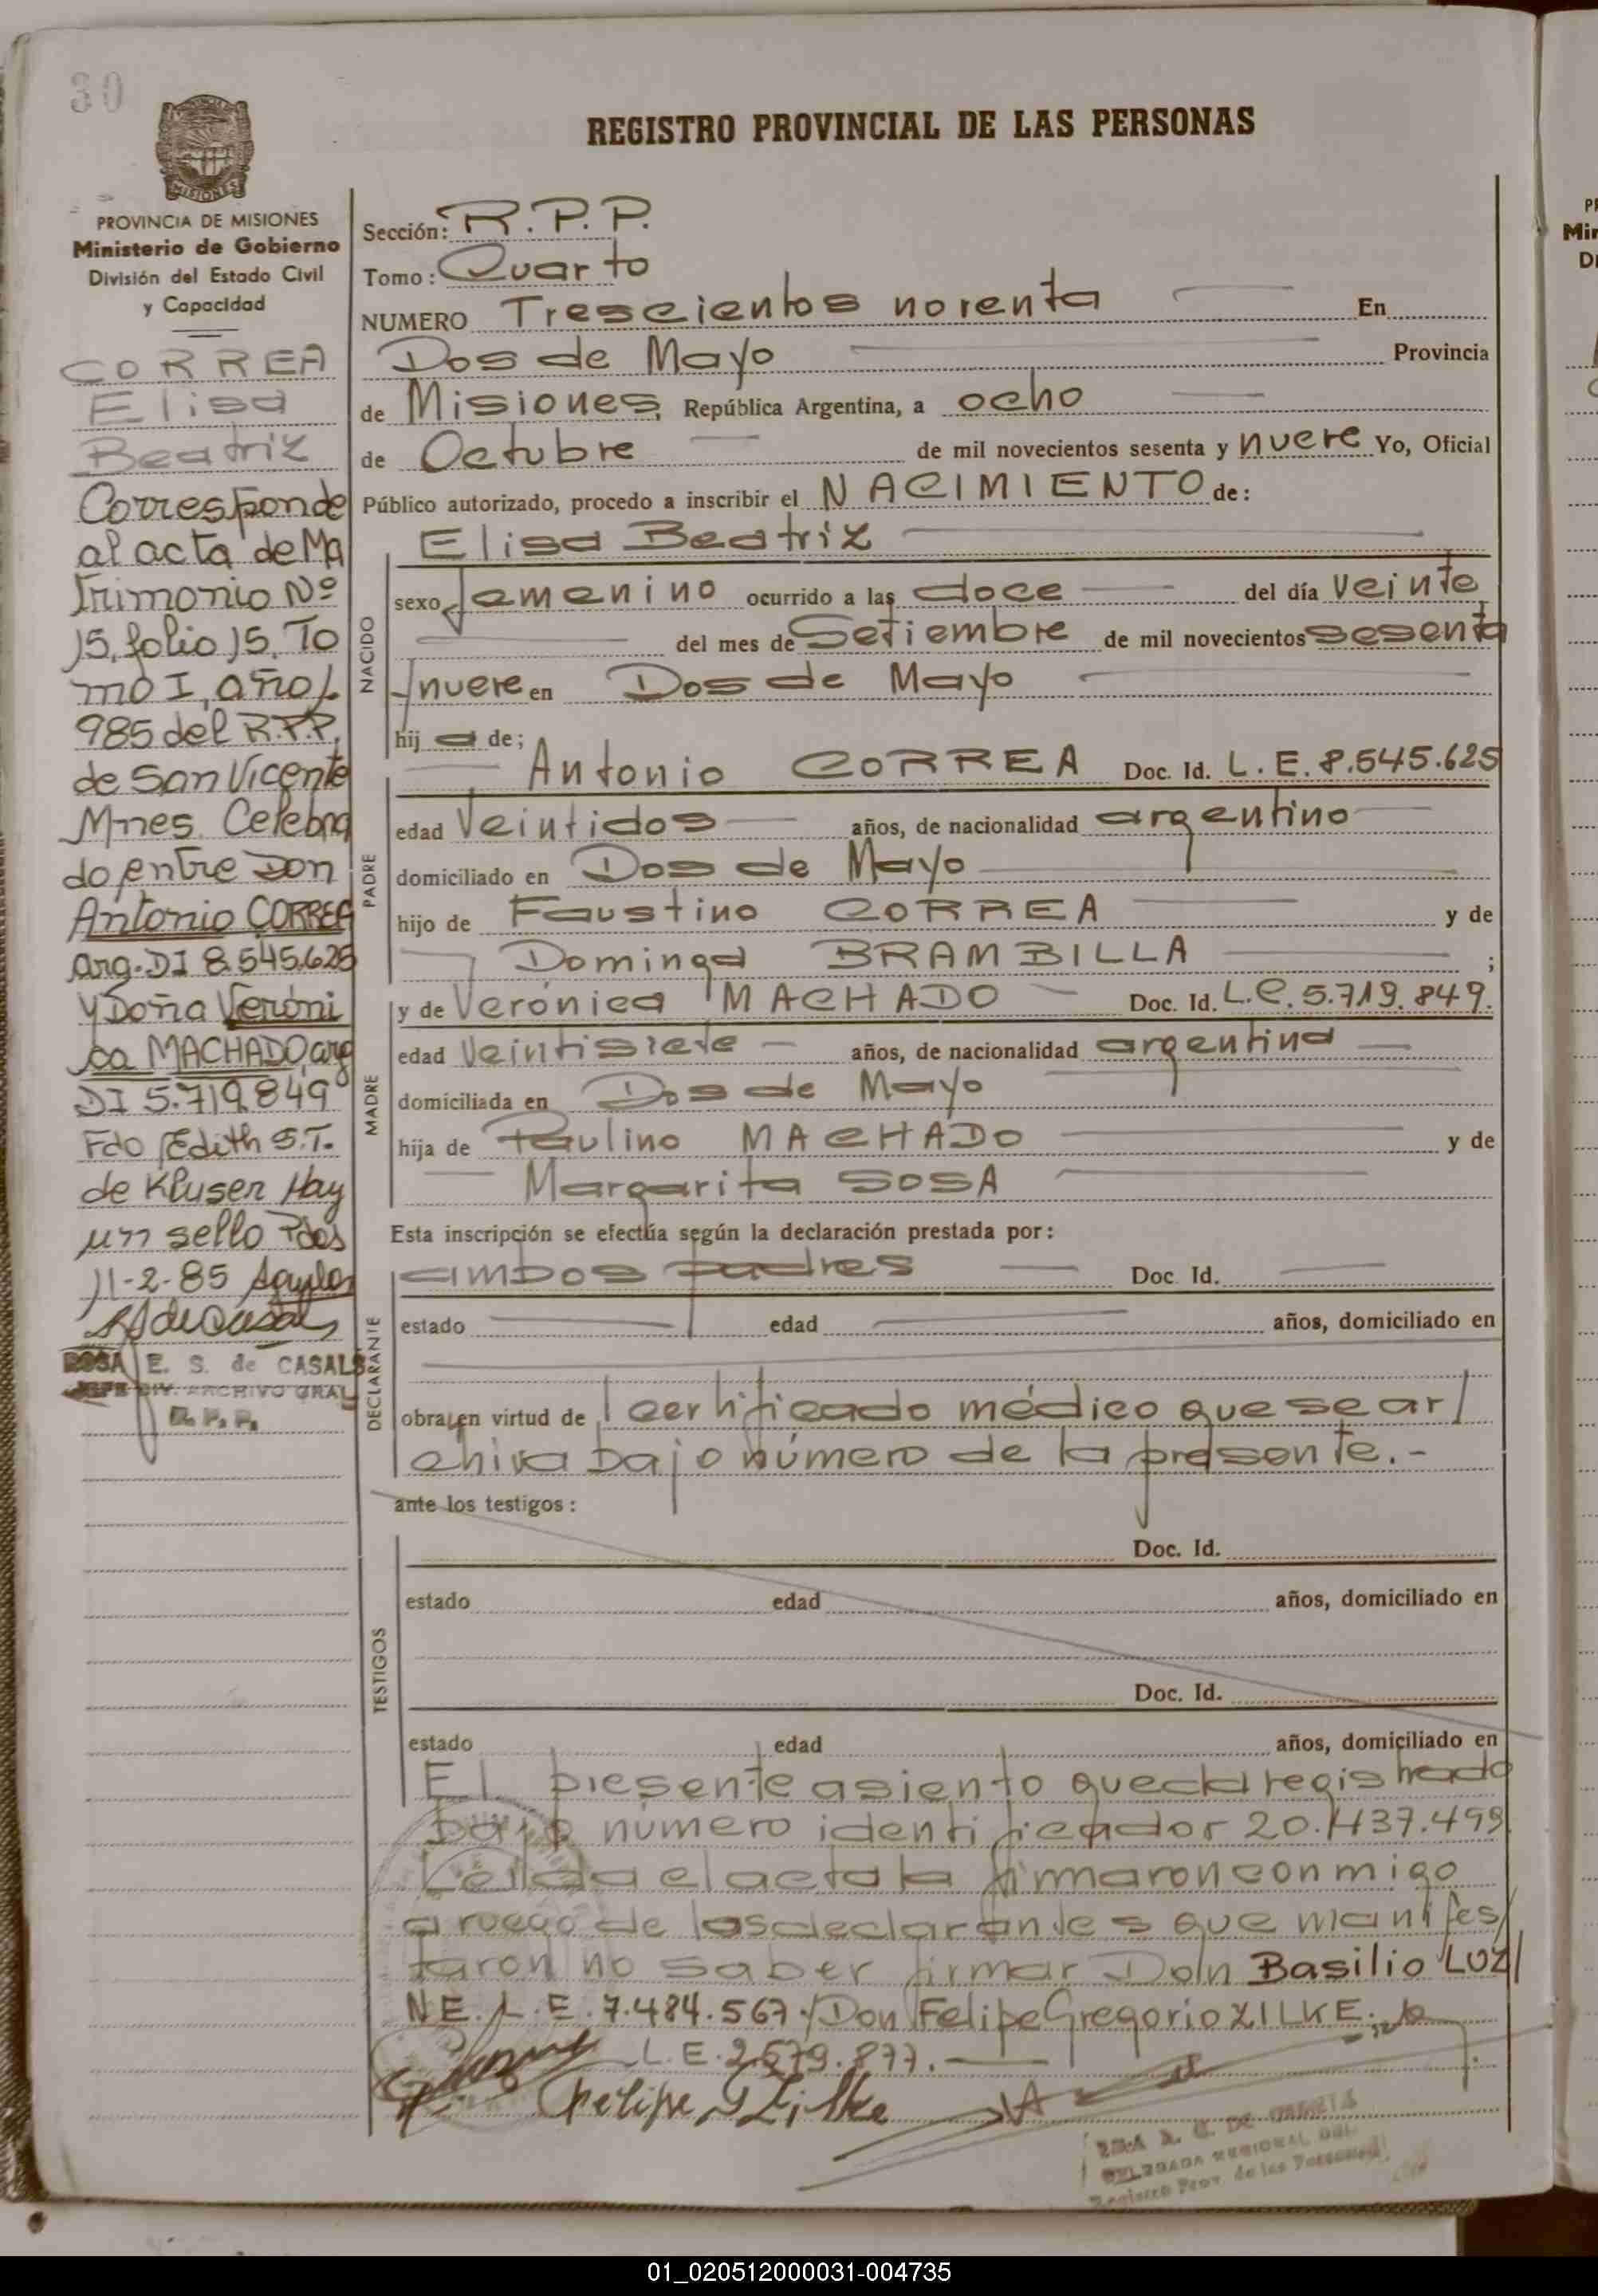 30
REGISTRO PROVINCIAL DE LAS PERSONAS
MISIONES
PROVINCIA DE MISIONES
Ministerio de Gobierno
División del Estado Civil
y Capacidad
CORREA
Elisa
Beatriz
Corresponde
al acta de Ma
trimonio Nº
15, folio 15, To
mo I, año 1
985 del R.P.P.
de San Vicente
Mnes. Celebra
do entre Don
Antonio CORREA
Arg. DI 8.545.625
y Doña Veróni
ca MACHADO, arg
DI 5.719.849
Fdo Edith S.T.
de Kluser Hay
un sello Pdas
11-2-85
ROSA E. S. de CASALS
JEFE DIV. ARCHIVO GRAL
R. P. P.
Sección: R.P.P.
Tomo: Cuarto
NUMERO Trescientos noventa En
Dos de Mayo Provincia
de Misiones, República Argentina, a ocho
de Octubre de mil novecientos sesenta y nueve Yo, Oficial
Público autorizado, procedo a inscribir el NACIMIENTO de:
Elisa Beatriz
NACIDO
sexo femenino ocurrido a las doce del día veinte
del mes de Setiembre de mil novecientos sesenta
y nueve en Dos de Mayo
hij a de;
Antonio CORREA Doc. Id. L.E. 8.545.625
PADRE
edad Veintidos años, de nacionalidad argentino
domiciliado en Dos de Mayo
hijo de Faustino CORREA y de
Dominga BRAMBILLA ;
y de Verónica MACHADO Doc. Id. L.C. 5.719.849.
MADRE
edad Veintisiete años, de nacionalidad argentina
domiciliada en Dos de Mayo
hija de Paulino MACHADO y de
Margarita SOSA
Esta inscripción se efectúa según la declaración prestada por:
ambos padres Doc. Id.
DECLARANTE
estado edad años, domiciliado en
obra en virtud de certificado médico que se ar/
chiva bajo número de la presente.-
ante los testigos:
TESTIGOS
Doc. Id.
estado edad años, domiciliado en
Doc. Id.
estado edad años, domiciliado en
El presente asiento queda registrado
bajo número identificador 20.437.499
Leída el acta la firmaron conmigo
a ruego de los declarantes que manifes/
taron no saber firmar Don Basilio LUZ/
NE. L.E. 7.484.567 y Don Felipe Gregorio ZILKE;
L.E. 2.679.877.
Felipe G Zilke
DELEGADA REGIONAL DEL
Registro Prov. de las Personas
01_020512000031-004735